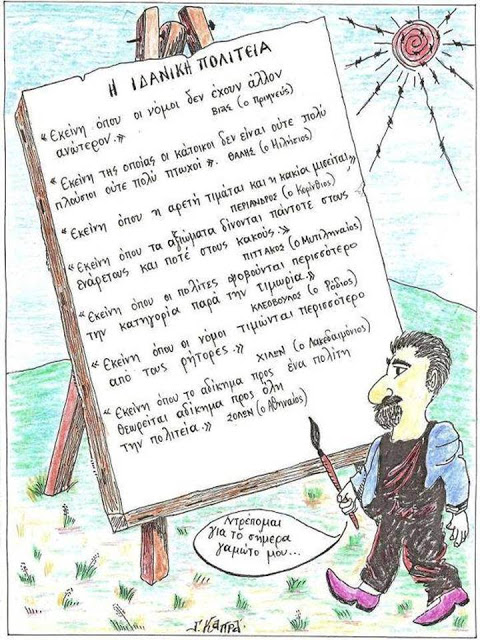 Η ΙΔΑΝΙΚΗ ΠΟΛΙΤΕΙΑ
« Εκείνη όπου οι νόμοι δεν έχουν άλλον
ανώτερον.» ΒΙΑΣ (ο Πριηνεύς)
« Εκείνη της οποίας οι κάτοικοι δεν είναι ούτε πολύ
πλούσιοι ούτε πολύ πτωχοί ». ΘΑΛΗΣ (ο Μιλήσιος)
« Εκείνη όπου η αρετή τιμάται και η κακία μισείται.»
ΠΕΡΙΑΝΔΡΟΣ (ο Κορίνθιος)
« Εκείνη όπου τα αξιώματα δίνονται πάντοτε στους
ενάρετους και ποτέ στους κακούς.»
ΠΙΤΤΑΚΟΣ (ο Μυτιληναίος)
« Εκείνη όπου οι πολίτες φοβούνται περισσότερο
την κατηγορία παρά την τιμωρία.»
ΚΛΕΟΒΟΥΛΟΣ (ο Ρόδιος)
« Εκείνη όπου οι νόμοι τιμώνται περισσότερο
από τους ρήτορες.» ΧΙΛΩΝ (ο Λακεδαιμόνιος)
« Εκείνη όπου το αδίκημα προς ένα πολίτη
θεωρείται αδίκημα προς όλη
την πολιτεία.» ΣΟΛΩΝ (ο Αθηναίος)
Ντρέπομαι
για το σήμερα
γαμώτο μου...
Γ. ΚΑΠΡΑ